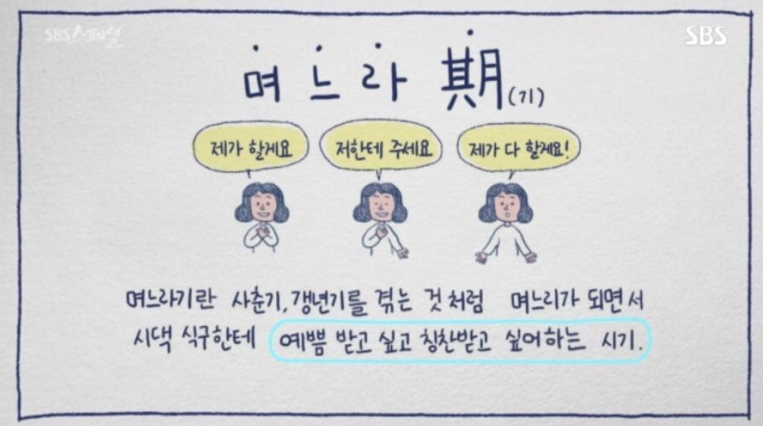 SBS스페셜
SBS
며느라 期(기)
제가 할게요
저한테 주세요
제가 다 할게요!
며느라기란 사춘기, 갱년기를 겪는 것처럼 며느리가 되면서
시댁 식구한테 예쁨 받고 싶고 칭찬받고 싶어하는 시기.